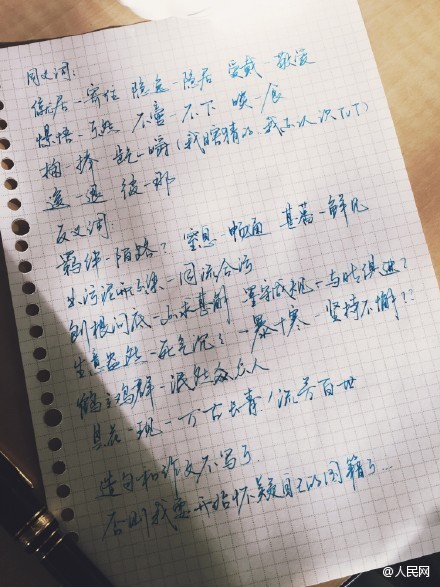 同义词:
僦居-寄住 隐逸-隐居 爱戴-敬爱
憬悟-了然 不啻-不下 啖-食
掬-捧 龁-嚼(我瞎猜的,我不认识TUT)
逡-退 彼-那
反义词:
羁绊-陌路? 窒息-畅通 甚蕃-鲜见
出污泥而不染-同流合污
刨根问底-不求甚解 墨守成规-与时俱进?
生意盎然-死气沉沉 一暴十寒-坚持不懈??
鹤立鸡群-混然众人
昙花一现-万古长青/流芳百世
造句和作文不写了.
否则我要开始怀疑自己的国籍了...
@人民网